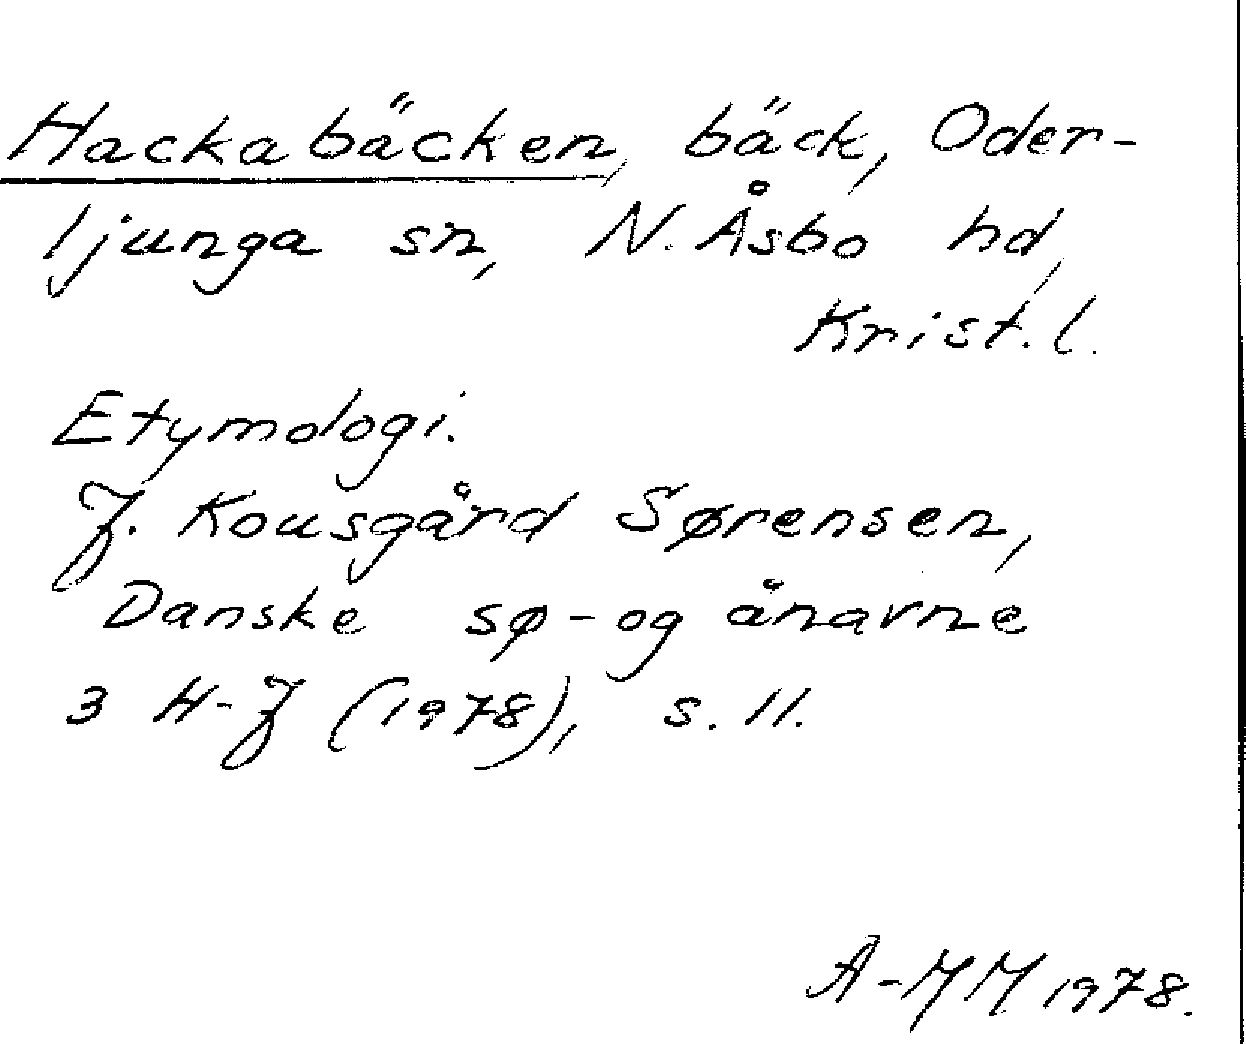 Hackabäcken, bäck, Oder-
ljunga sn, N. Åsbo hd,
Krist. l.
Etymologi.
J. Kousgård Sørensen,
Danske sø- og ånavne
3 H-J (1978), s. 11.
A-MM 1978.